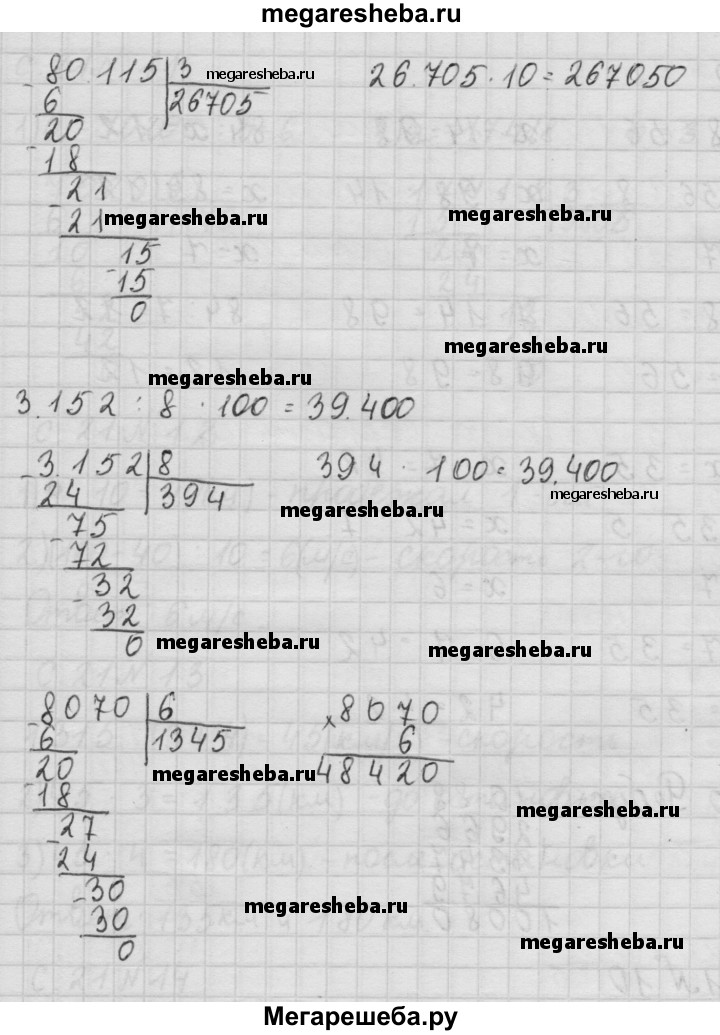 megaresheba.ru
80.115 | 3 megaresheba.ru 26.705 · 10 = 267050
- 6 26705
20
- 18
21
- 21 megaresheba.ru megaresheba.ru
15
- 15
0
megaresheba.ru
megaresheba.ru
3.152 : 8 · 100 = 39.400
3.152 | 8 394 · 100 = 39.400
- 24 394 megaresheba.ru
megaresheba.ru
75
- 72
32
- 32
0 megaresheba.ru megaresheba.ru
8070 | 6 × 8070
- 6 1345 6
20 megaresheba.ru 48420
- 18 megaresheba.ru
27
- 24
30 megaresheba.ru
- 30
0 megaresheba.ru
Мегарешеба.ру